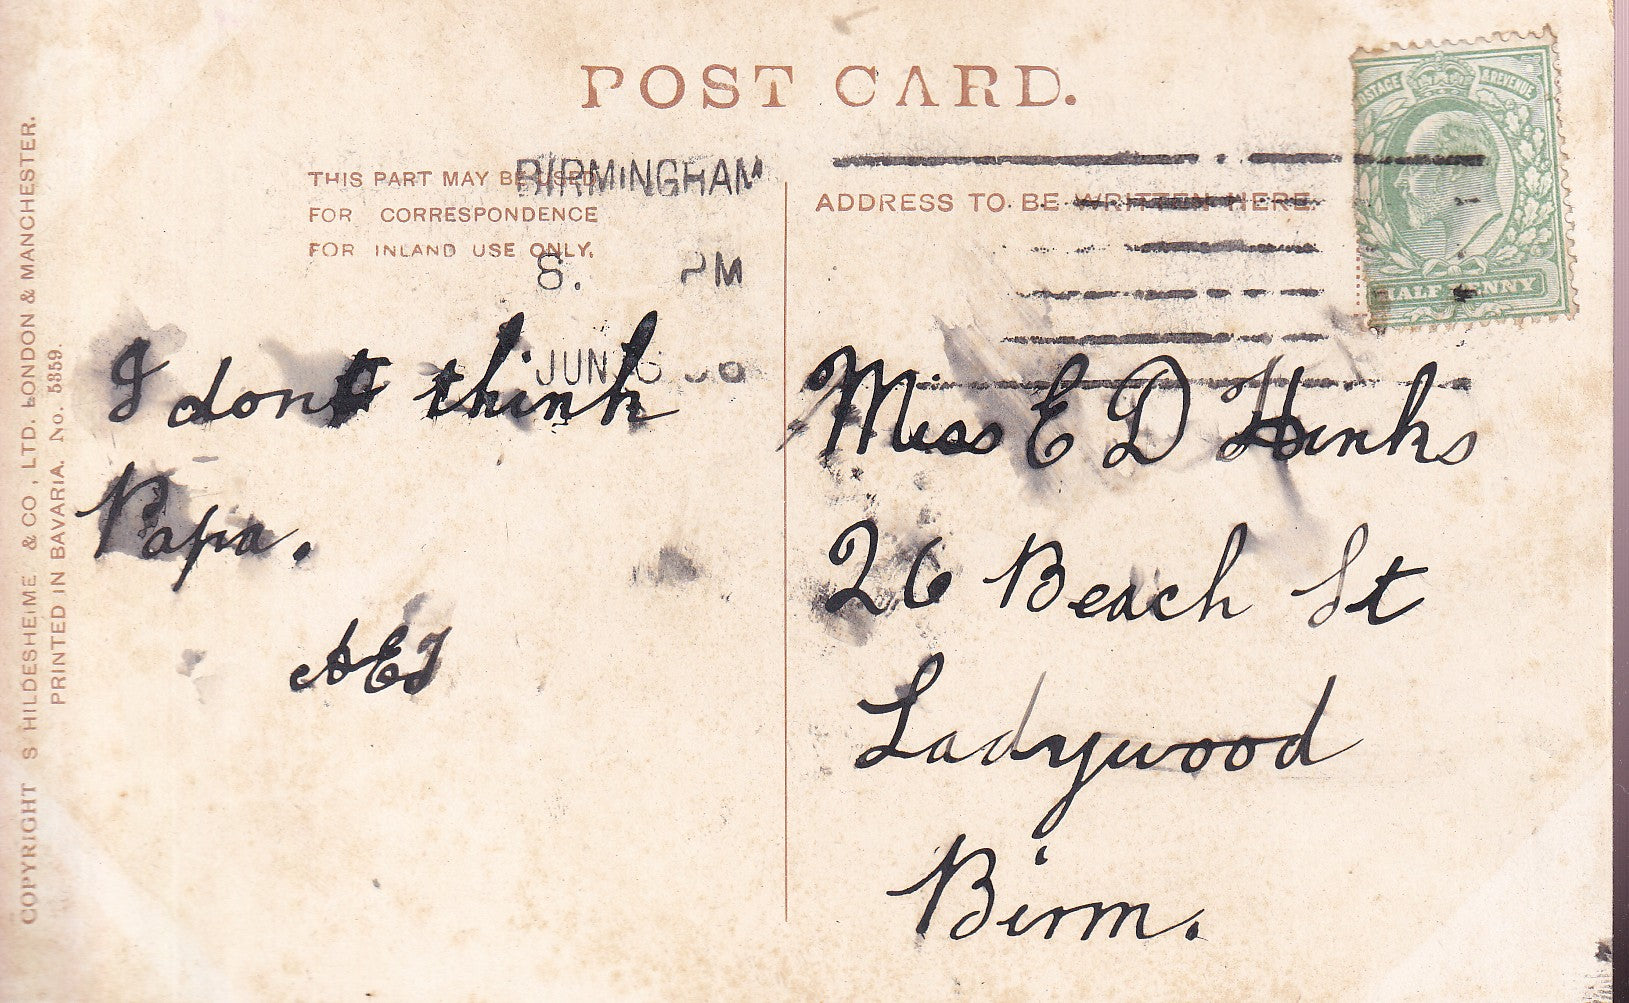 POST CARD.
THIS PART MAY BE USED
FOR CORRESPONDENCE
FOR INLAND USE ONLY.
BIRMINGHAM
8. PM
JUN
ADDRESS TO BE WRITTEN HERE.
POSTAGE & REVENUE
HALF PENNY
I dont think
Papa.
AEJ
Miss E D Hinks
26 Beach St
Ladywood
Birm.
COPYRIGHT S HILDESHEIME & CO., LTD. LONDON & MANCHESTER.
PRINTED IN BAVARIA. No. 5359.